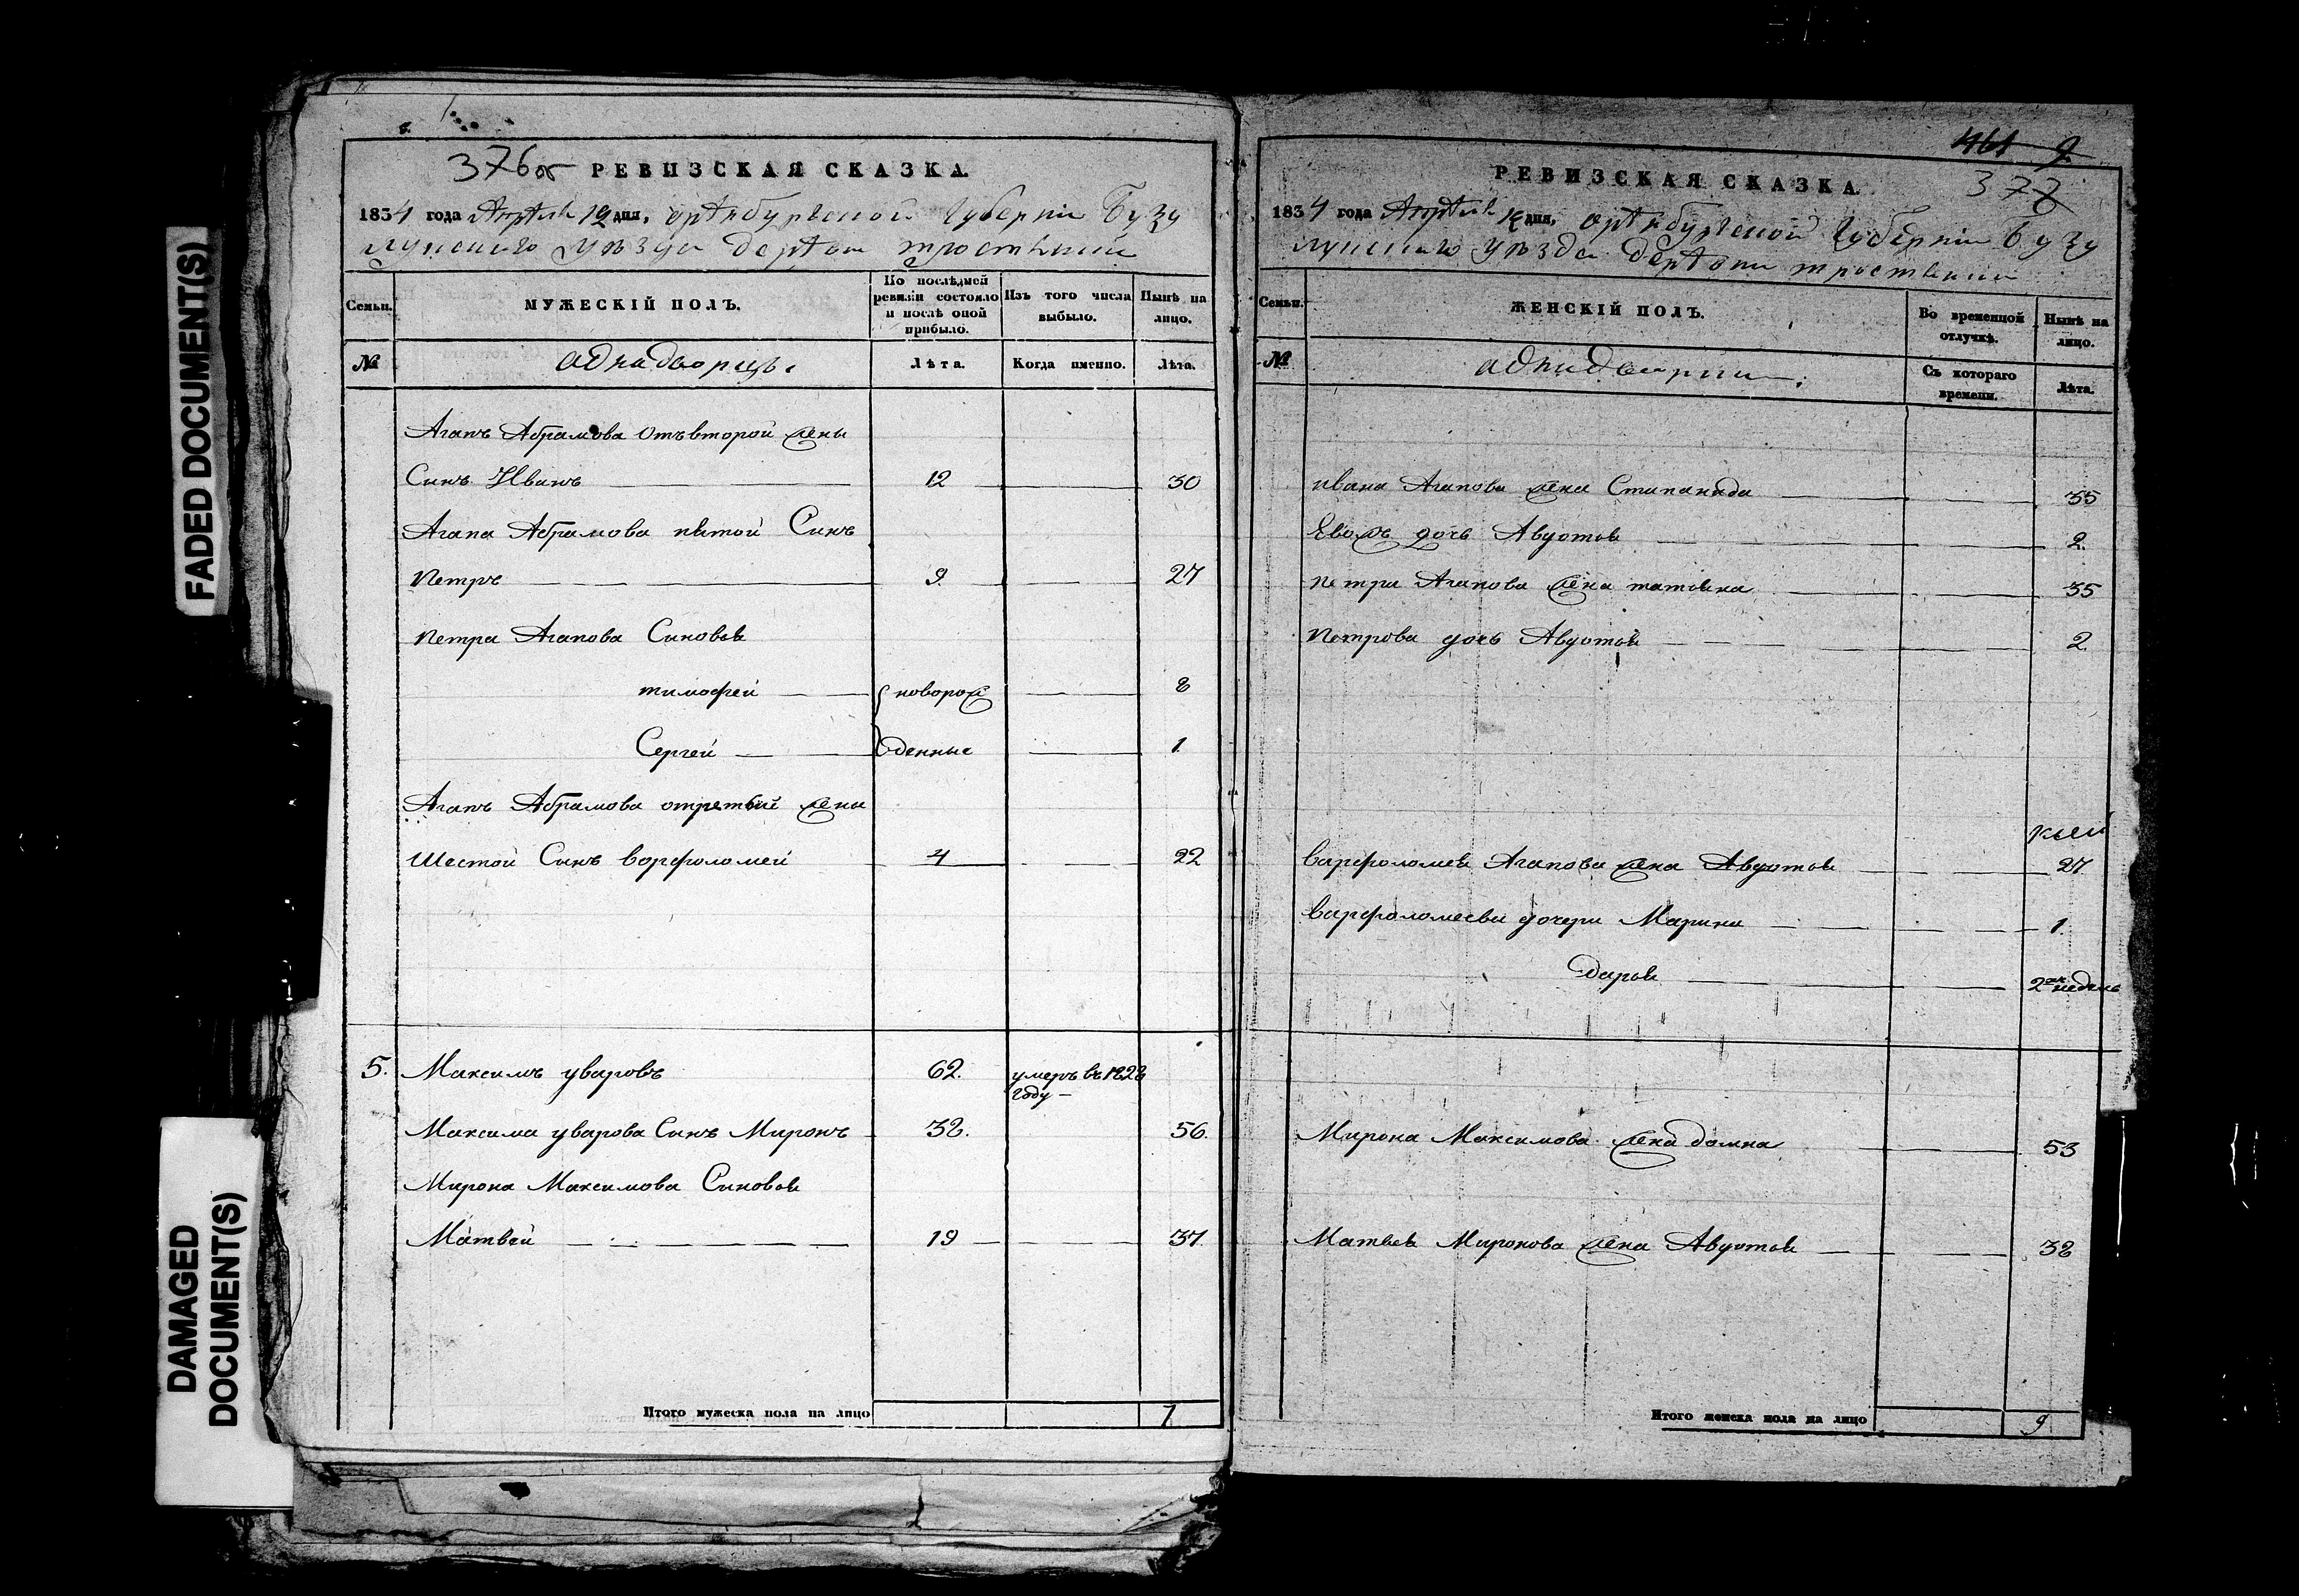 FADED DOCUMENT(S)
DAMAGED
DOCUMENT(S)
376об
РЕВИЗСКАЯ СКАЗКА.
1834 года Апреля 12 дня, оренбургской Губернии Бузу
лукского уезда деревни тростянки
Семьи.
МУЖЕСКІЙ ПОЛЪ.
По послѣдней ревизіи состояло и послѣ оной прибыло.
Изъ того числа выбыло.
Нынѣ на лицо.
№
аднадворцы.
Лѣта.
Когда именно.
Лѣта.
Агапъ Абрамова отъ второй жены
Синъ Иванъ 12 30
Агапа Абрамова пятой Синъ
Петръ 9. 27
Петра Агапова Синовья
тимофей новорож 8
Сергей денные 1.
Агапъ Абрамова отретьей жены
Шестой Синъ ворфоломей 4 22
5. Максимъ уваровъ 62. умеръ въ 1828
году
Максима уварова Синъ Миронъ 38. 56.
Мирона Максимова Синовья
Матвей 19 37
Итого мужеска пола на лицо 7
461 9.
377
РЕВИЗСКАЯ СКАЗКА.
1834 года Апреля 12 дня, оренбургской Губернии Бузу
лукского уезда деревни тростянки
Семьи.
ЖЕНСКІЙ ПОЛЪ.
Во временной отлучкѣ.
Нынѣ на лицо.
№
Съ котораго времени.
Лѣта.
ивана Агапова жена Стипанида 35
Евожъ дочь Авдотья 2.
петра Агапова жена татьяна 35
Петрова дочь Авдотья 2.
варфоломея Агапова жена Авдотья 27
варфоломеева дочери Марина 1.
дарья 2 недель
Мирона Максимова жена домна 53
Матвея Миронова жена Авдотья 38
Итого женска пола на лицо 9